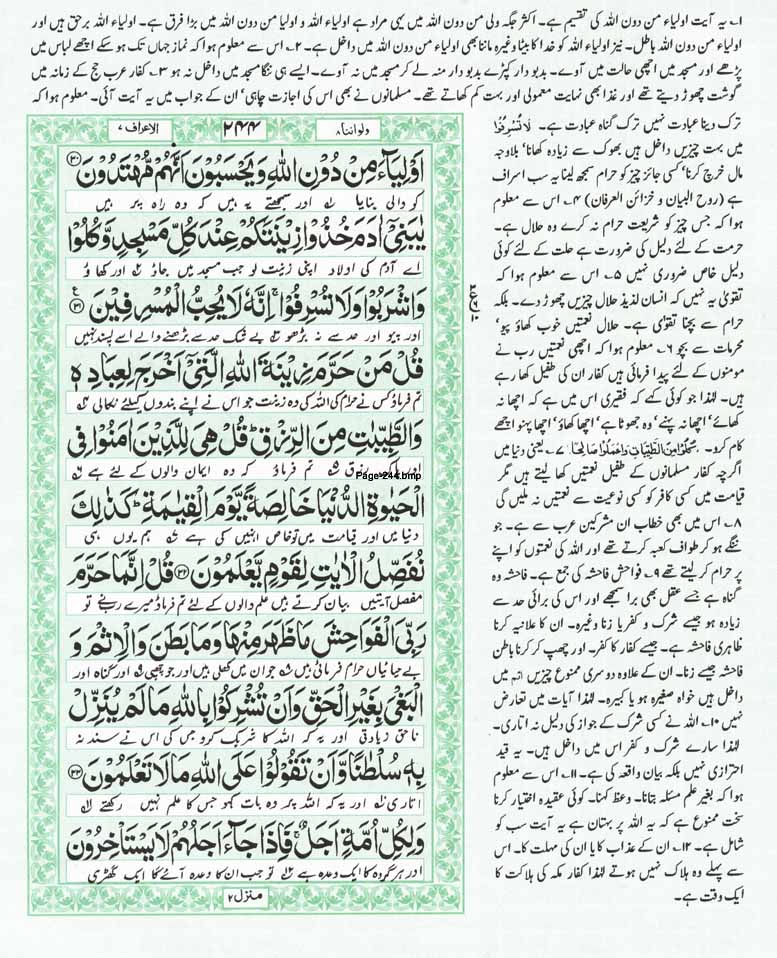 ۱۔ یہ آیت اولیاء من دون اللہ کی تقسیم ہے۔ اکثر جگہ ولی من دون اللہ میں یہی مراد ہے اولیاء اللہ و اولیا من دون اللہ میں بڑا فرق ہے۔ اولیاء اللہ برحق ہیں اور
اولیاء من دون اللہ باطل۔ نیز اولیاء اللہ کو خدا کا بیٹا وغیرہ ماننا بھی اولیاء من دون اللہ میں داخل ہے۔ ۲۔ اس سے معلوم ہوا کہ نماز جہاں تک ہو سکے اچھے لباس میں
پڑھے اور مسجد میں اچھی حالت میں آوے۔ بدبو دار کپڑے بدبو دار منہ لے کر مسجد میں نہ آوے۔ ایسے ہی ننگا مسجد میں داخل نہ ہو ۳۔ کفار عرب حج کے زمانہ میں
گوشت چھوڑ دیتے تھے اور غذا بھی نہایت معمولی اور بہت کم کھاتے تھے۔ مسلمانوں نے بھی اس کی اجازت چاہی، ان کے جواب میں یہ آیت آئی۔ معلوم ہوا کہ
ترک دنیا عبادت نہیں ترک گناہ عبادت ہے۔ لَا تُسْرِفُوْا
میں بہت چیزیں داخل ہیں بھوک سے زیادہ کھانا، بلاوجہ
مال خرچ کرنا، کسی جائز چیز کو حرام سمجھ لینا یہ سب اسراف
ہے (روح البیان و خزائن العرفان) ۴۔ اس سے معلوم
ہوا کہ جس چیز کو شریعت حرام نہ کرے وہ حلال ہے۔
حرمت کے لئے دلیل کی ضرورت ہے حلت کے لئے کوئی
دلیل خاص ضروری نہیں ۵۔ اس سے معلوم ہوا کہ
تقویٰ یہ نہیں کہ انسان لذیذ حلال چیزیں چھوڑ دے۔ بلکہ
حرام سے بچنا تقویٰ ہے۔ حلال نعمتیں خوب کھاؤ پیو،
محرمات سے بچو ۶۔ معلوم ہوا کہ اچھی نعمتیں رب نے
مومنوں کے لئے پیدا فرمائی ہیں کفار ان کی طفیل کھا رہے
ہیں۔ لہٰذا جو کوئی کہے کہ فقیری اس میں ہے کہ اچھا نہ
کھائے، اچھا نہ پہنے، وہ جھوٹا ہے، اچھا کھاؤ، اچھا پہنو اچھے
کام کرو۔ كُلُوْا مِنَ الطَّيِّبٰتِ وَاعْمَلُوْا صَالِحًا ۷۔ یعنی دنیا میں
اگرچہ کفار مسلمانوں کے طفیل نعمتیں کھا لیتے ہیں مگر
قیامت میں کسی کافر کو کسی نوعیت سے نعمتیں نہ ملیں گی
۸۔ اس میں بھی خطاب ان مشرکین عرب سے ہے۔ جو
ننگے ہو کر طواف کعبہ کرتے تھے اور اللہ کی نعمتوں کو اپنے
پر حرام کر لیتے تھے ۹۔ فواحش فاحشہ کی جمع ہے۔ فاحشہ وہ
گناہ ہے جسے عقل بھی برا سمجھے اور اس کی برائی حد سے
زیادہ ہو جیسے شرک و کفر یا زنا وغیرہ۔ ان کا علانیہ کرنا
ظاہری فاحشہ ہے۔ جیسے کفار کا کفر۔ اور چھپ کر کرنا باطن
فاحشہ جیسے زنا۔ ان کے علاوہ دوسری ممنوع چیزیں اثم میں
داخل ہیں خواہ صغیرہ ہو یا کبیرہ۔ لہٰذا آیات میں تعارض
نہیں ۱۰۔ اللہ نے کسی شرک کے جواز کی دلیل نہ اتاری۔
لہٰذا سارے شرک و کفر اس میں داخل ہیں۔ یہ قید
احترازی نہیں بلکہ بیان واقعہ کی ہے۔ ۱۱۔ اس سے معلوم
ہوا کہ بغیر علم مسئلہ بتانا۔ وعظ کہنا۔ کوئی عقیدہ اختیار کرنا
سخت ممنوع ہے کہ یہ اللہ پر بہتان ہے یہ آیت سب کو
شامل ہے۔ ۱۲۔ ان کے عذاب کا یا ان کی مہلت کا۔ اس
سے پہلے وہ ہلاک نہیں ہوتے لہٰذا کفار مکہ کی ہلاکت کا
ایک وقت ہے۔
ولواننا۸ ۲۴۴ الاعراف ۷
اَوْلِيَآءَ مِنْ دُوْنِ اللّٰهِ وَيَحْسَبُوْنَ اَنَّهُمْ مُّهْتَدُوْنَ ۳۰
کو والی بنایا ۱؎ اور سمجھتے یہ ہیں کہ وہ راہ پر ہیں
يٰبَنِيْٓ اٰدَمَ خُذُوْا زِيْنَتَكُمْ عِنْدَ كُلِّ مَسْجِدٍ وَّكُلُوْا
اے آدم کی اولاد اپنی زینت لو جب مسجد میں جاؤ ۲؎ اور کھاؤ
وَاشْرَبُوْا وَلَا تُسْرِفُوْا ۚ اِنَّهٗ لَا يُحِبُّ الْمُسْرِفِيْنَ ۳۱
اور پیو اور حد سے نہ بڑھو ۳؎ بے شک حد سے بڑھنے والے اسے پسند نہیں
قُلْ مَنْ حَرَّمَ زِيْنَةَ اللّٰهِ الَّتِيْٓ اَخْرَجَ لِعِبَادِهٖ
تم فرماؤ کس نے حرام کی اللہ کی وہ زینت جو اس نے اپنے بندوں کیلئے نکالی ۴؎
وَالطَّيِّبٰتِ مِنَ الرِّزْقِ ؕ قُلْ هِيَ لِلَّذِيْنَ اٰمَنُوْا فِي
اور پاک رزق ۵؎ تم فرماؤ کہ وہ ایمان والوں کے لئے ہے ۶؎
Page-244.bmp
الْحَيٰوةِ الدُّنْيَا خَالِصَةً يَّوْمَ الْقِيٰمَةِ ؕ كَذٰلِكَ
دنیا میں اور قیامت میں تو خاص انہیں کی ہے ۷؎ ہم یوں ہی
نُفَصِّلُ الْاٰيٰتِ لِقَوْمٍ يَّعْلَمُوْنَ ۳۲ قُلْ اِنَّمَا حَرَّمَ
مفصل آیتیں بیان کرتے ہیں علم والوں کے لئے تم فرماؤ میرے رب نے تو
رَبِّيَ الْفَوَاحِشَ مَا ظَهَرَ مِنْهَا وَمَا بَطَنَ وَالْاِثْمَ وَ
بے حیائیاں حرام فرمائی ہیں ۸؎ جو ان میں کھلی ہیں اور جو چھپی ۹؎ اور گناہ اور
الْبَغْيَ بِغَيْرِ الْحَقِّ وَاَنْ تُشْرِكُوْا بِاللّٰهِ مَا لَمْ يُنَزِّلْ
ناحق زیادتی اور یہ کہ اللہ کا شریک کرو جس کی اس نے سند نہ
بِهٖ سُلْطٰنًا وَّاَنْ تَقُوْلُوْا عَلَى اللّٰهِ مَا لَا تَعْلَمُوْنَ ۳۳
اتاری ۱۰؎ اور یہ کہ اللہ پر وہ بات کہو جس کا علم نہیں رکھتے ۱۱؎
وَلِكُلِّ اُمَّةٍ اَجَلٌ ۚ فَاِذَا جَآءَ اَجَلُهُمْ لَا يَسْتَاْخِرُوْنَ
اور ہر گروہ کا ایک وعدہ ہے ۱۲؎ تو جب ان کا وعدہ آئے گا ایک گھڑی
منزل۲